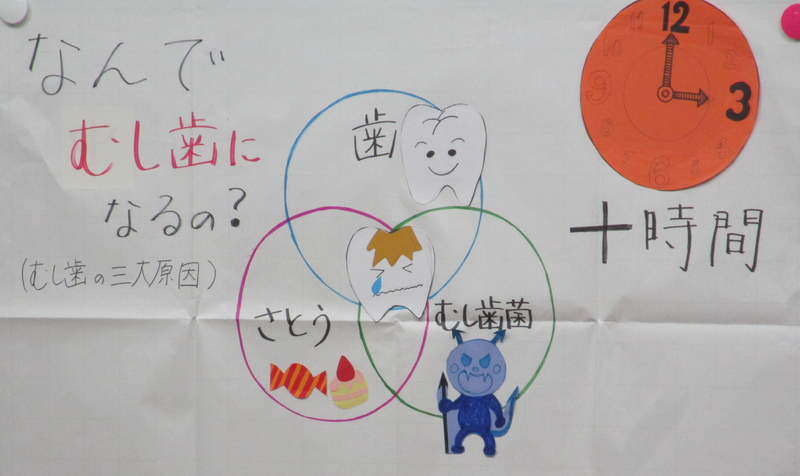 なんで
むし歯に
なるの?
(むし歯の三大原因)
歯
さとう
むし歯菌
12
1
2
3
4
5
6
7
8
9
10
11
+時間